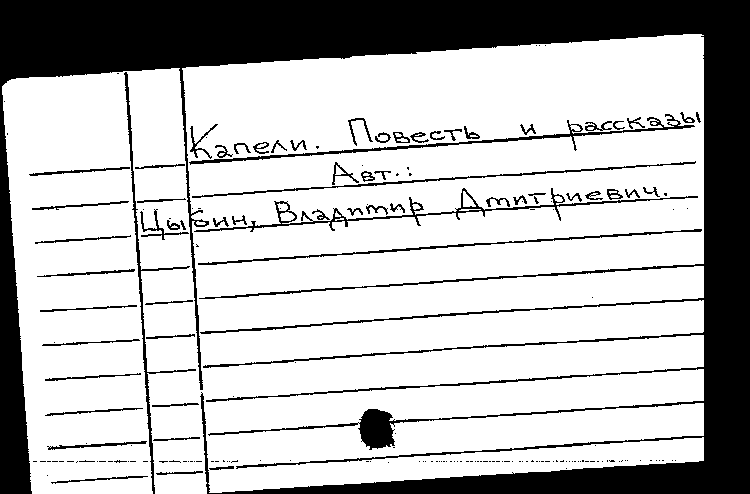 Капели. Повесть и рассказы
Авт.:
Цыбин, Владимир Дмитриевич.